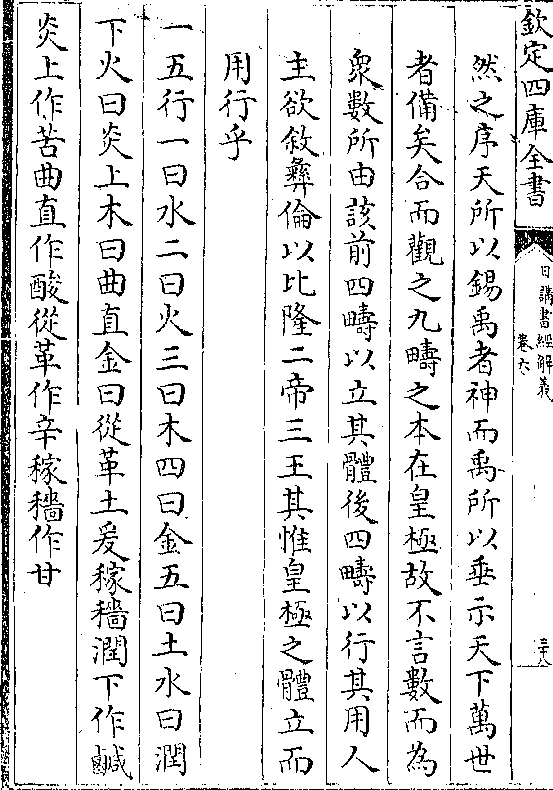 欽定四庫全書
日講書經解義
卷六
三十八
然之序天所以錫禹者神而禹所以垂示天下萬世
者備矣合而觀之九疇之本在皇極故不言數而為
衆數所由該前四疇以立其體後四疇以行其用人
主欲敘彝倫以比隆二帝三王其惟皇極之體立而
用行乎
一五行一曰水二曰火三曰木四曰金五曰土水曰潤
下火曰炎上木曰曲直金曰從革土爰稼穡潤下作鹹
炎上作苦曲直作酸從革作辛稼穡作甘